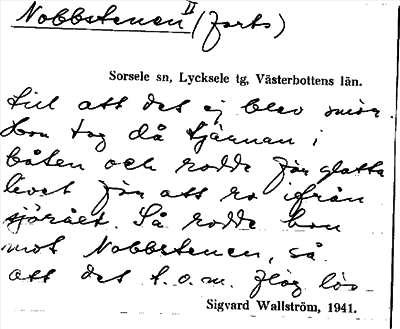 Nobbstenen II (forts)
Sorsele sn, Lycksele tg, Västerbottens län.
till att det ej blev smör.
Hon tog då tjärnan i
båten och rodde för glatta
livet för att ro ifrån
sjörået. Så rodde hon
mot Nobbstenen, så
att det t.o.m. flög lös-
Sigvard Wallström, 1941.